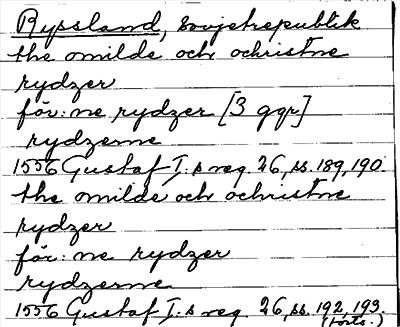 Ryssland, Sovjetrepublik
the omilde och ochristne
rydzer
för:ne rydzer [3 ggr]
rydzerne
1556 Gustaf I:s reg. 26, ss. 189, 190.
the omilde och ochristne
rydzer
för:ne rydzer
rydzerne
1556 Gustaf I:s reg. 26, ss. 192, 193.
(forts.)